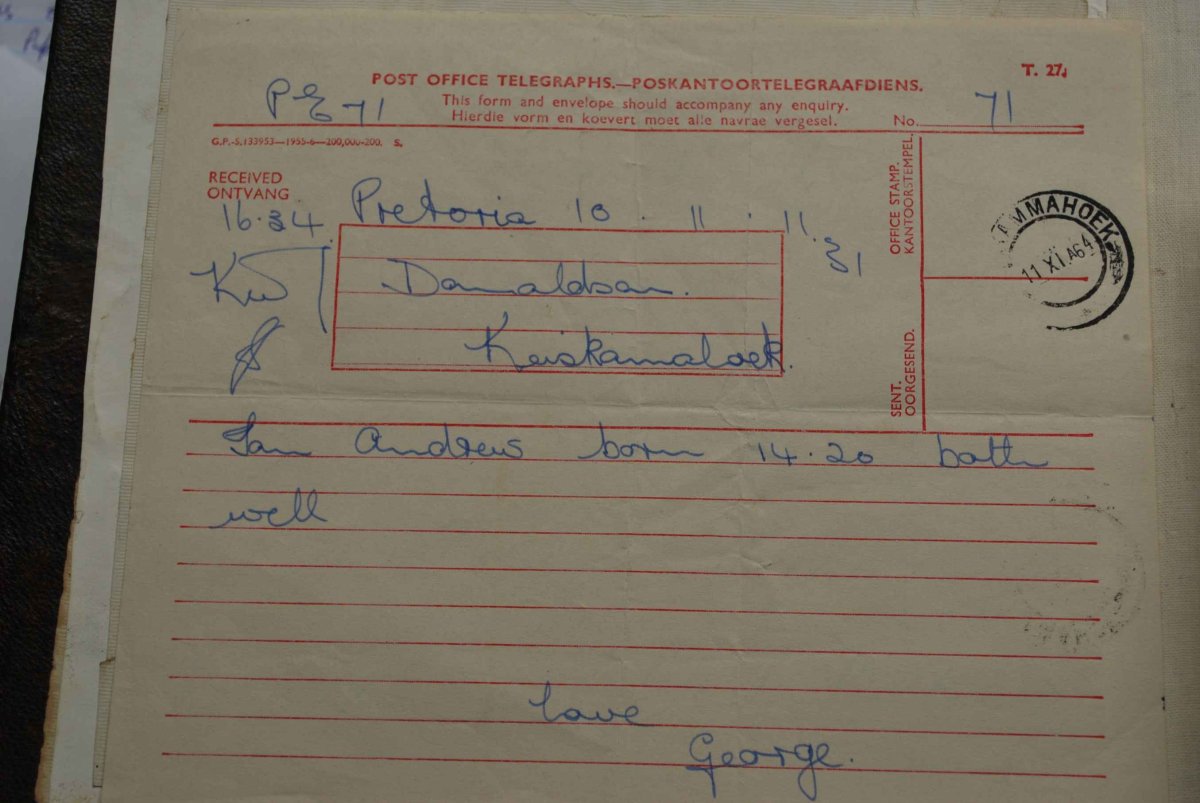 T. 27.
POST OFFICE TELEGRAPHS.—POSKANTOORTELEGRAAFDIENS.
PE 71
This form and envelope should accompany any enquiry.
Hierdie vorm en koevert moet alle navrae vergesel.
No. 71
G.P.-S.133953—1955-6—200,000-200. S.
RECEIVED
ONTVANG
OFFICE STAMP.
KANTOORSTEMPEL.
16.34 Pretoria 10 . 11 . 11.31
MMAHOEK
11 XI 64
Donaldson.
Keiskamahoek.
SENT.
OORGESEND.
Ian Andrews born 14.20 both
well
Love
George.